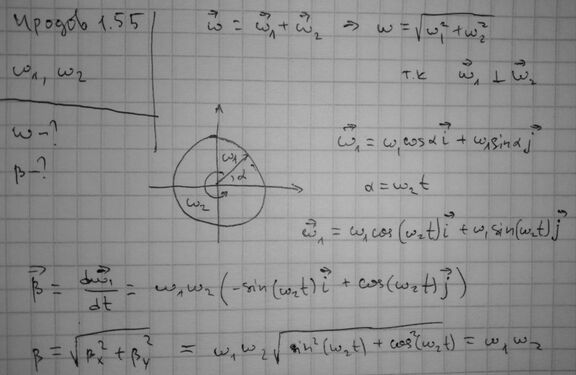 Иродов 1.55
ω₁, ω₂
ω - ?
β - ?
ω⃗ = ω⃗₁ + ω⃗₂ ⇒ ω = √(ω₁² + ω₂²)
т.к ω⃗₁ ⊥ ω⃗₂
ω₁
α
ω₂
ω⃗₁ = ω₁cosα i⃗ + ω₁sinα j⃗
α = ω₂t
ω⃗₁ = ω₁cos(ω₂t) i⃗ + ω₁sin(ω₂t) j⃗
β⃗ = dω⃗₁/dt = ω₁ω₂(-sin(ω₂t) i⃗ + cos(ω₂t) j⃗)
β = √(βₓ² + βᵧ²) = ω₁ω₂√(sin²(ω₂t) + cos²(ω₂t)) = ω₁ω₂